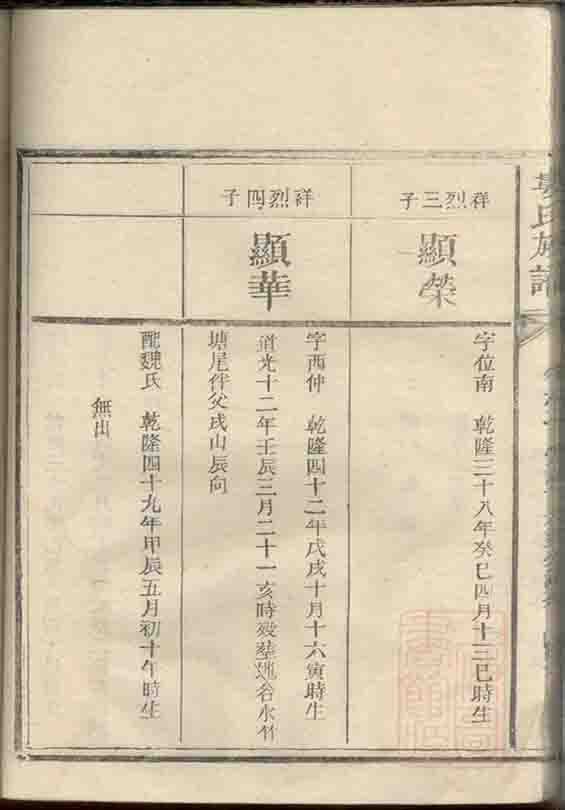 氏族譜
祥烈三子
顯榮
字位南　乾隆三十八年癸巳四月十三巳時生
祥烈四子
顯華
字酉仲　乾隆四十二年戊戌十月十六寅時生
道光十二年壬辰三月二十一亥時歿塟逃谷水竹
塘尾伴父戌山辰向
配魏氏　乾隆四十九年甲辰五月初十午時生
無出